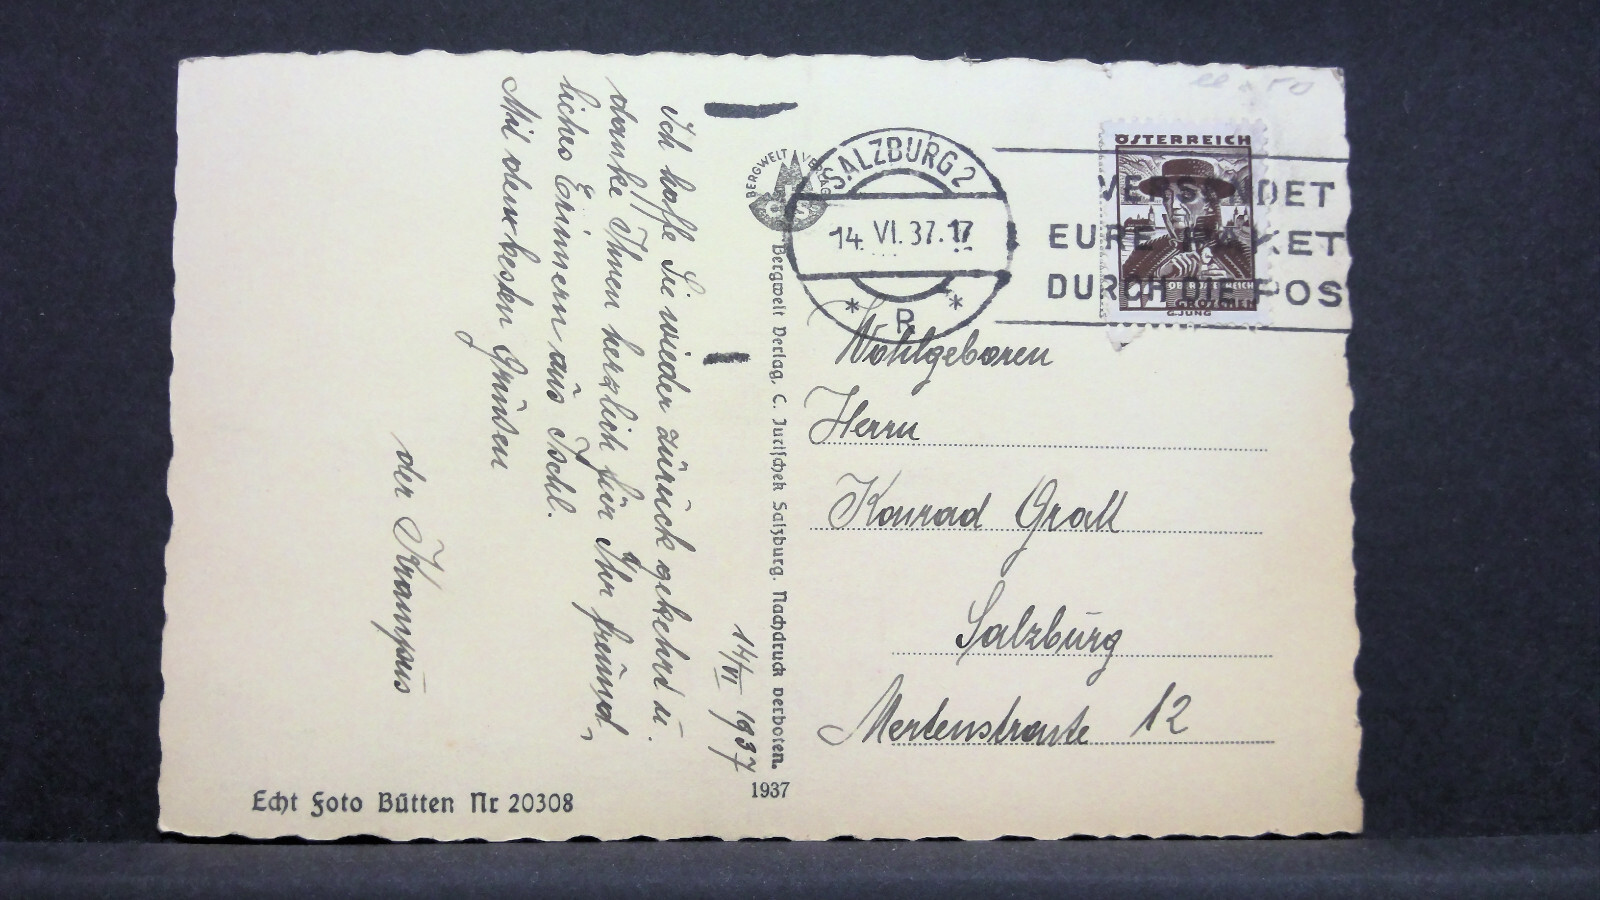 14/VI 1937
Ich hoffe Sie wieder zurück gekehrt u.
danke Ihnen herzlich für Ihr freund-
liches Erinnern aus Ischl.
Mit den besten Grüssen
der Krampus
BERGWELT VERLAG
Bergwelt Verlag, C. Jurischek Salzburg. Nachdruck verboten.
1937
Echt Foto Bütten Nr 20308
SALZBURG 2
14. VI. 37. 17
* R *
VERSENDET
EURE PAKET
DURCH DIE POS
ÖSTERREICH
OBERÖSTERREICH
GROSCHEN
G. JUNG
Wohlgeboren
Herrn
Konrad
Salzburg
12